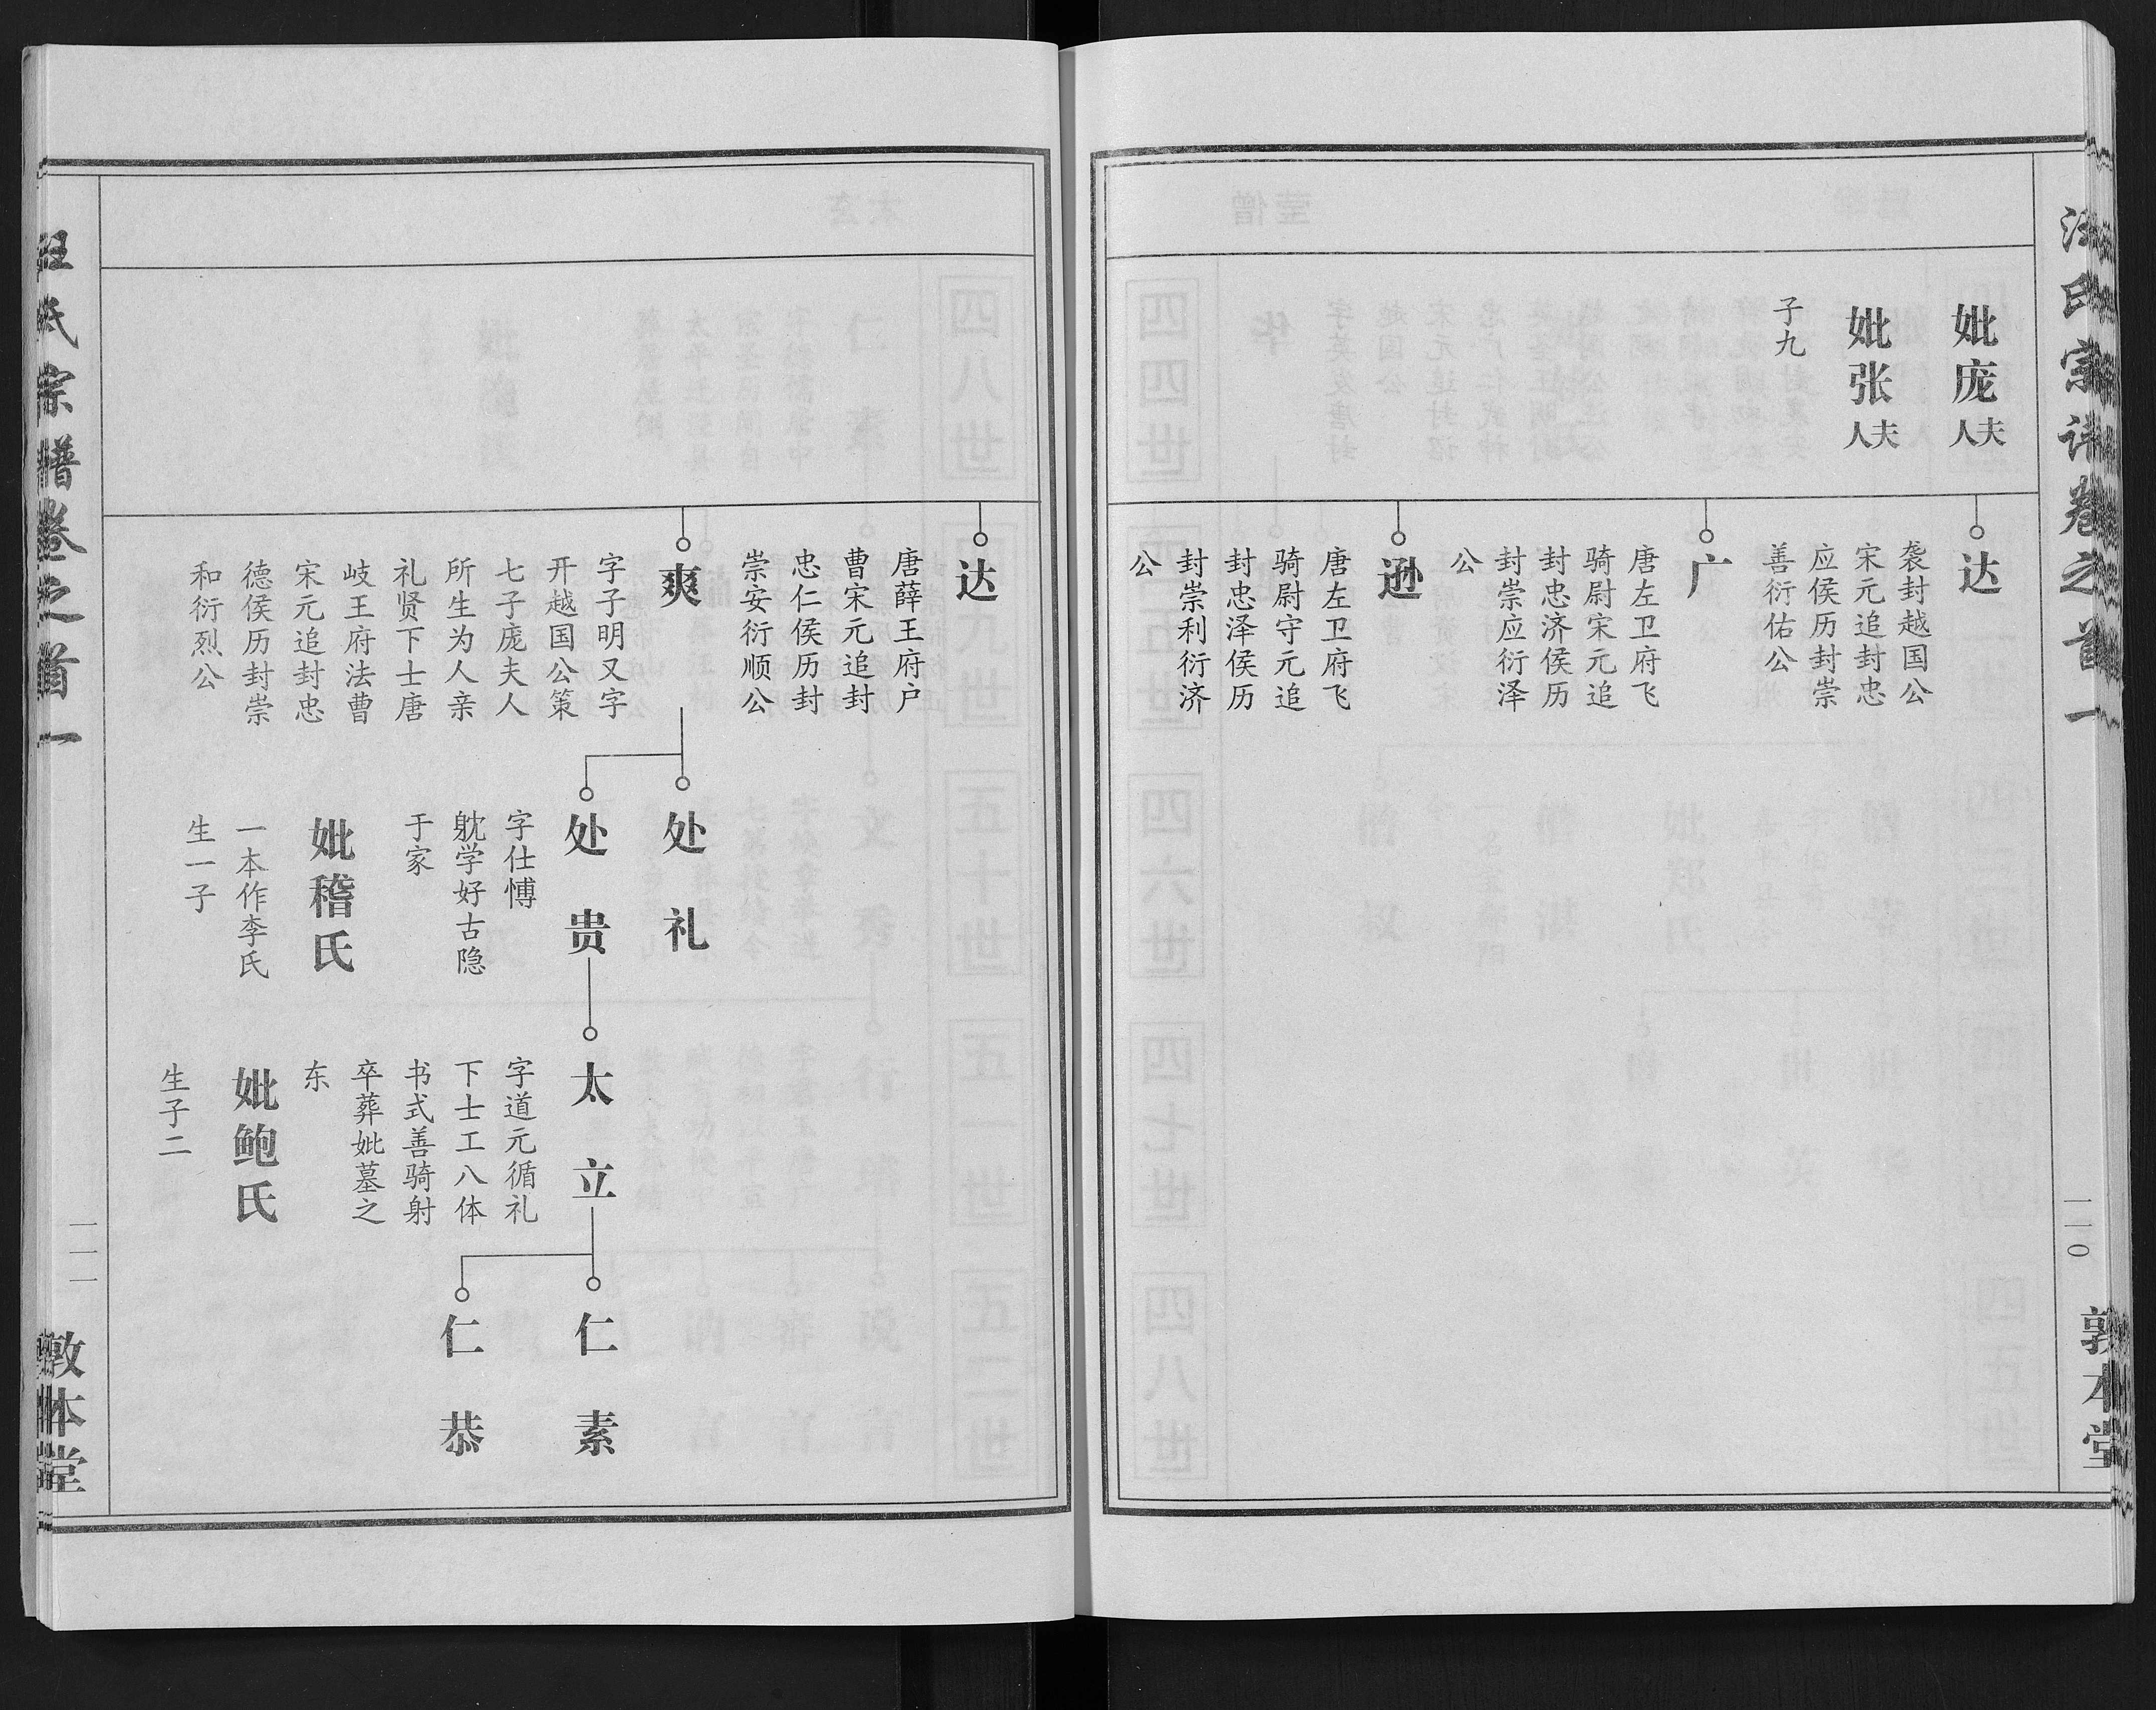 汪氏宗谱卷之首一
一一〇
敦本堂
妣庞夫人
妣张夫人
子九
达
袭封越国公
宋元追封忠
应侯历封崇
善衍佑公
广
唐左卫府飞
骑尉宋元追
封忠济侯历
封崇应衍泽
公
逊
唐左卫府飞
骑尉守元追
封忠泽侯历
封崇利衍济
公
达
唐薛王府户
曹宋元追封
忠仁侯历封
崇安衍顺公
爽
字子明又字
开越国公策
七子庞夫人
所生为人亲
礼贤下士唐
岐王府法曹
宋元追封忠
德侯历封崇
和衍烈公
处礼
处贵
字仕愽
躭学好古隐
于家
妣稽氏
一本作李氏
生一子
太立
字道元循礼
下士工八体
书式善骑射
卒葬妣墓之
东
妣鲍氏
生子二
仁素
仁恭
汪氏宗谱卷之首一
一一一
敦本堂